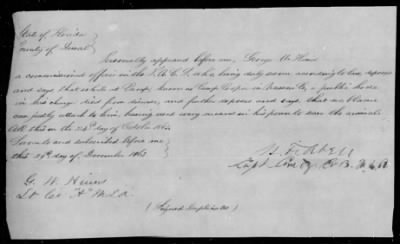 State of Florida
County of Duval
Personally appeared before me, George W. Hines
a commissioned officer in the P.A.C.S. who being duly sworn according to law, deposes
and says that while at Camp, known as Camp Cooper in Nassau Co, a public horse
in his charge died from disease, and further deposes and says, that no blame
can justly attach to him, having used every means in his power to save the animal.
All this on the 28th day of October 1862
Sworn to and subscribed before me
this 29th day of December 1862
Capt Comdg Co
G. W. Hines
Lt Co "A"
(Signed Duplicate)